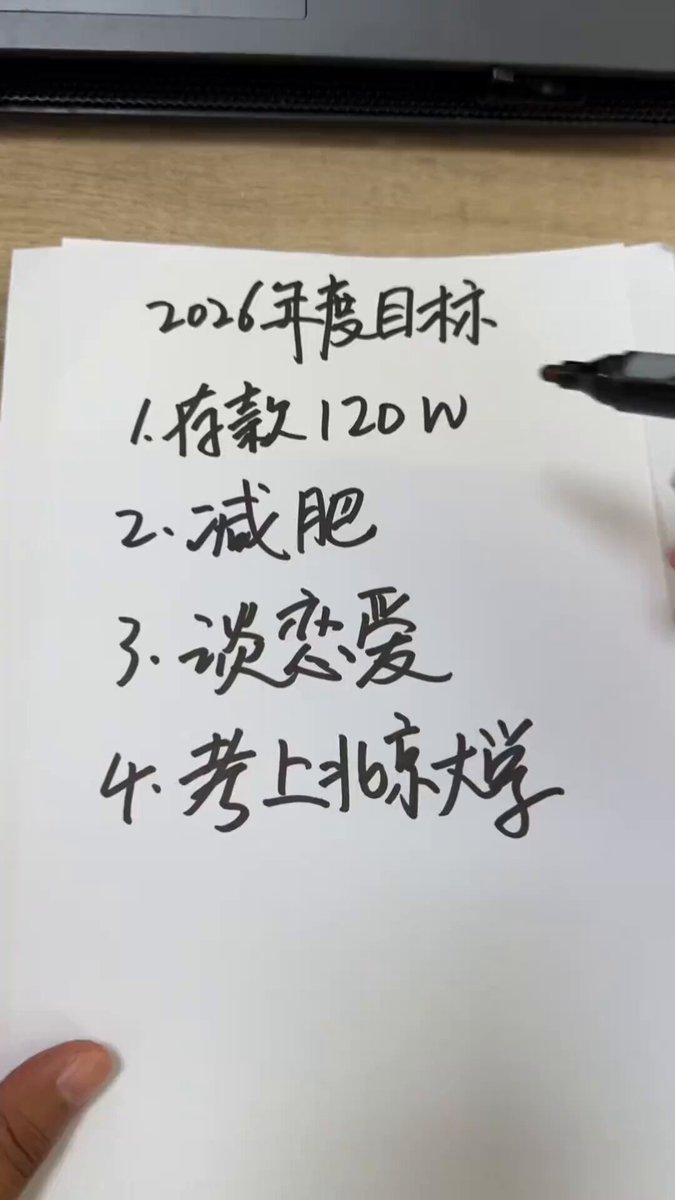 2026年度目标
1.存款120W
2.减肥
3.谈恋爱
4.考上北京大学